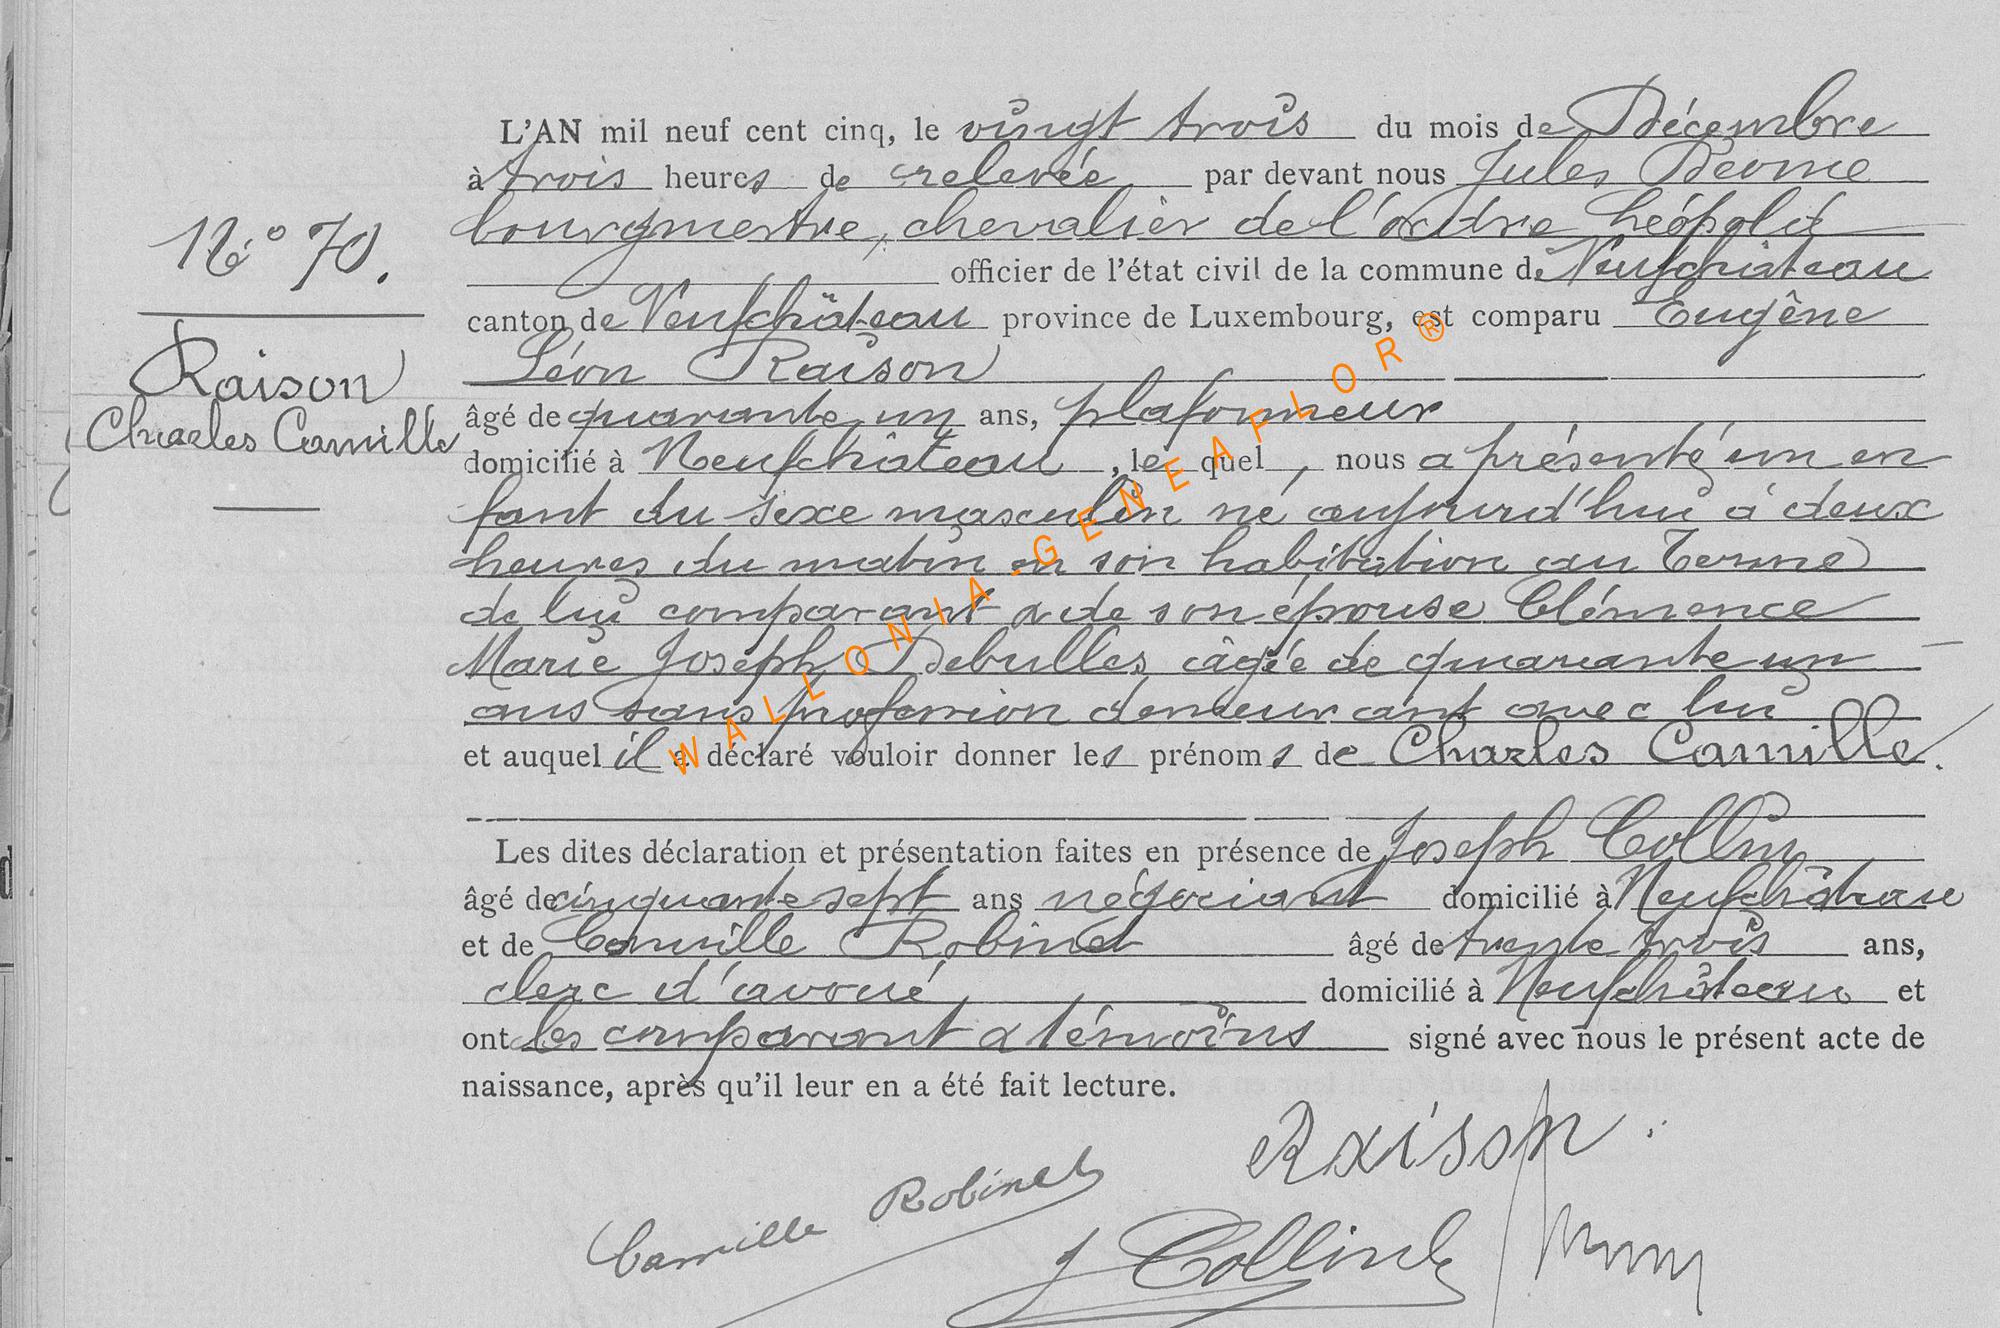 L'AN mil neuf cent cinq, le vingt trois du mois de Décembre
à trois heures de relevée par devant nous Jules
bourgmestre, chevalier de l'ordre Léopold
N° 70.
officier de l'état civil de la commune de Neufchâteau
canton de Neufchâteau province de Luxembourg, est comparu Eugène
Léon Raison
Raison
Charles Camille
âgé de quarante un ans, plafonneur
domicilié à Neufchâteau, le quel, nous a présenté un en
fant du sexe masculin né aujourd'hui à deux
heures du matin en son habitation au Terme
de lui comparant & de son épouse Clémence
Marie Joseph Debulles âgée de quarante un
ans sans profession demeurant avec lui
et auquel il a déclaré vouloir donner les prénoms de Charles Camille.
WALLONIA-GENEAFLOR®
Les dites déclaration et présentation faites en présence de Joseph Collin
âgé de cinquante sept ans négociant domicilié à Neufchâteau
et de Camille Robinet âgé de trente trois ans,
clerc d'avoué, domicilié à Neufchâteau et
ont les comparant & témoins signé avec nous le présent acte de
naissance, après qu'il leur en a été fait lecture.
Raison
Camille Robinet
J Collin